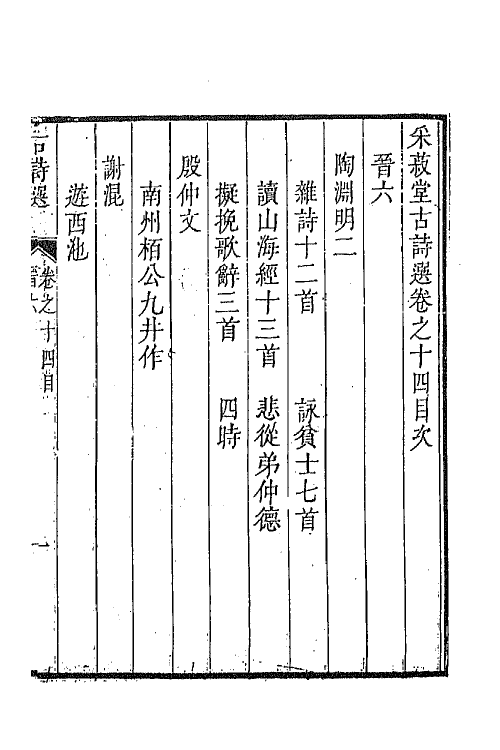 采菽堂古詩選卷之十四目次
晉六
陶淵明二
雜詩十二首 詠貧士七首
讀山海經十三首 悲從弟仲德
擬挽歌辭三首 四時
殷仲文
南州栢公九井作
謝混
遊西池
古詩選 卷之十四目 晉六 一